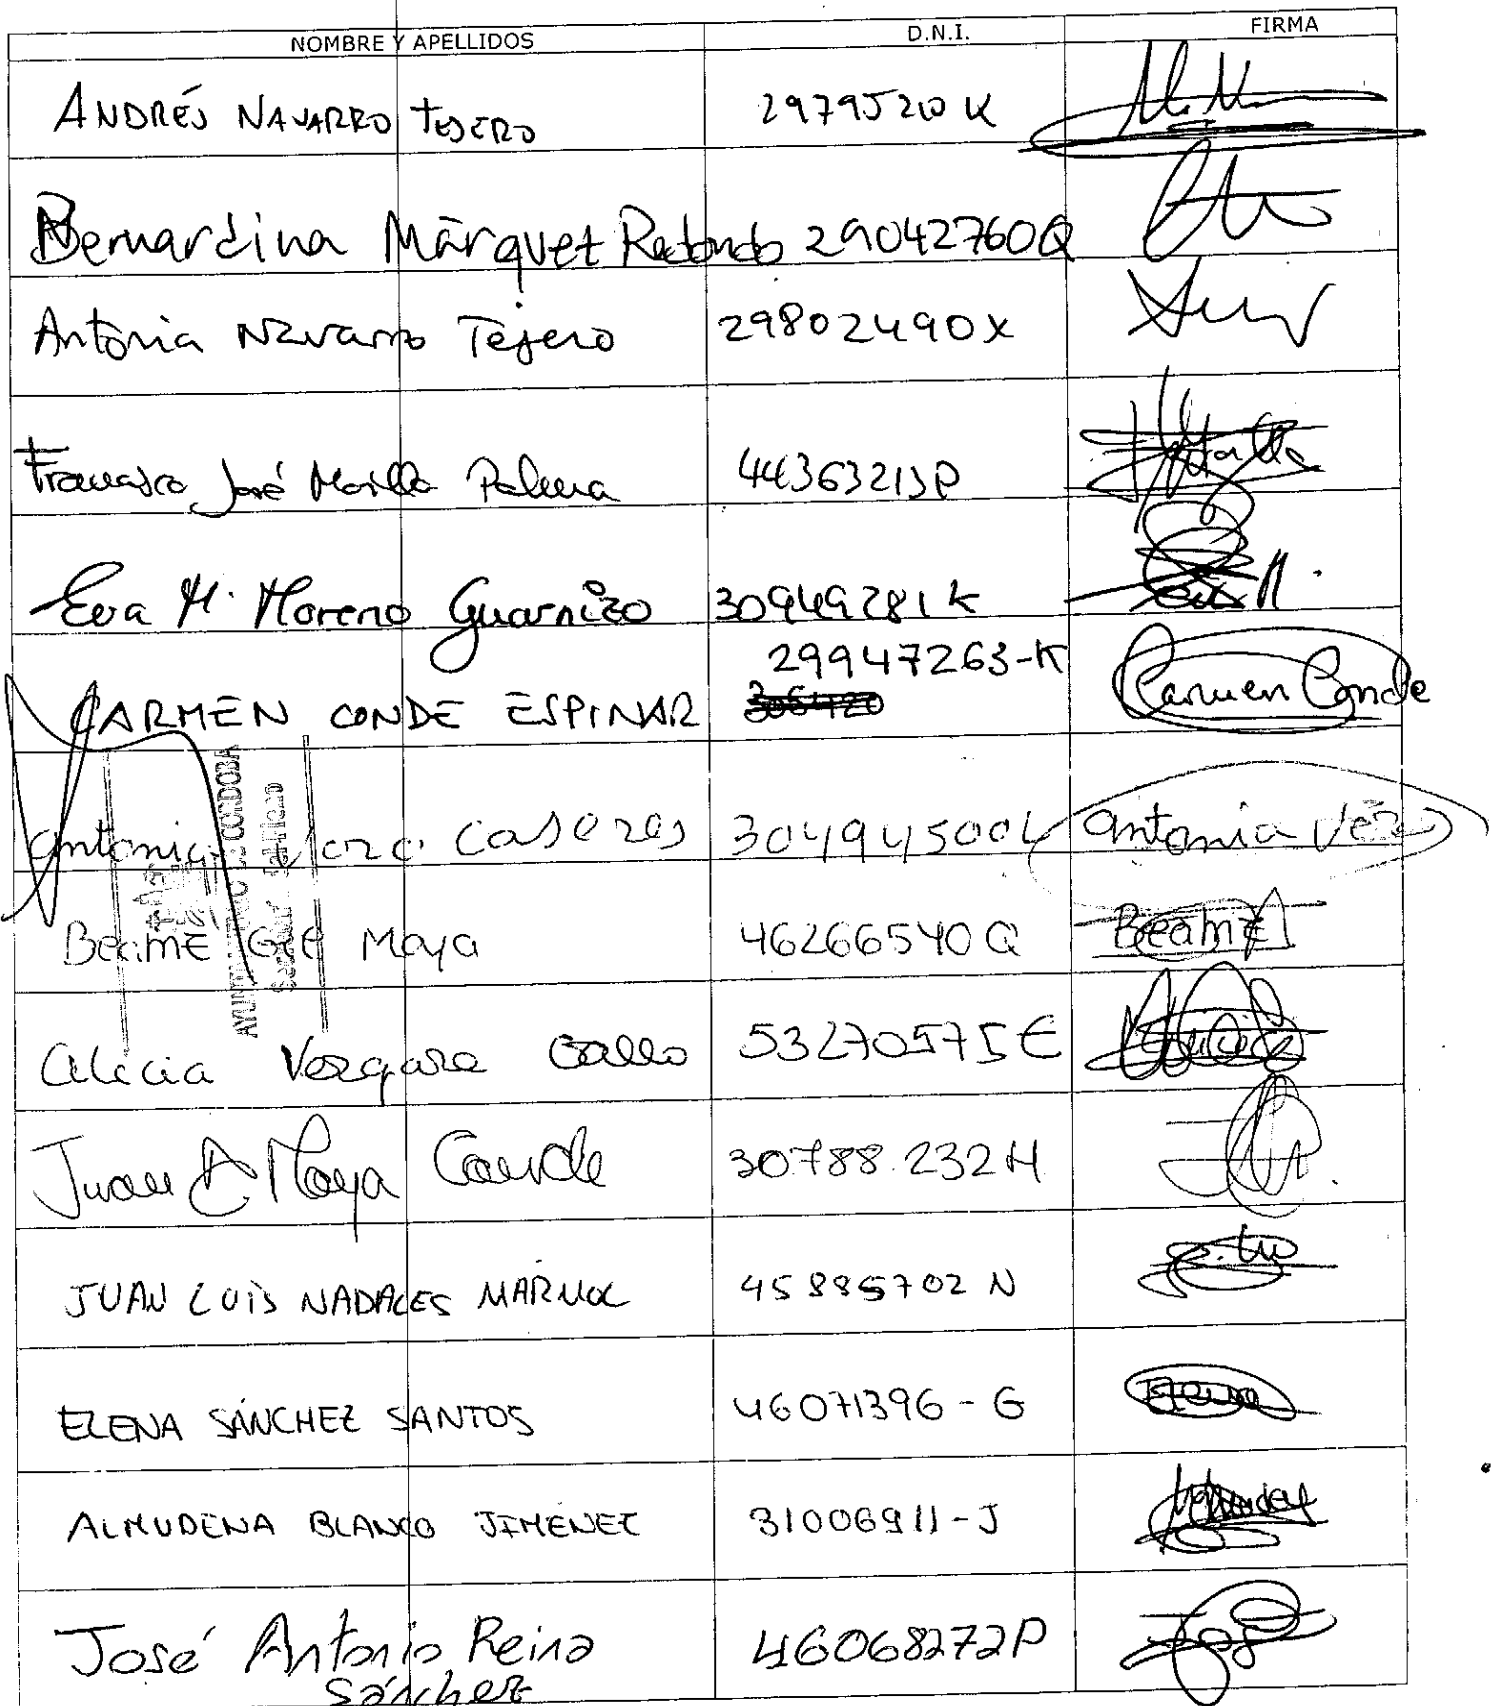 NOMBRE Y APELLIDOS D.N.I. FIRMA
ANDRÉS NAVARRO TEJERO 29795210 K
Bernardina Márquez Redondo 29042760Q
Antonia Navarro Tejero 29802490X
Francisco José Morilla Palma 44363213P
Eva M. Moreno Guarnizo 30949281K
29947263-K
CARMEN CONDE ESPINAR Carmen Conde
AYUNTAMIENTO DE CORDOBA
Antonia Casares 30494500L Antonia
Moya 46266540Q
Alicia Vergara Gallo 53270575E
Juan A Moya Conde 30788.232H
JUAN LUIS NADALES MARMOL 45885702 N
ELENA SÁNCHEZ SANTOS 46071396-G
ALMUDENA BLANCO JIMENEZ 31006911-J
José Antonio Reina 46068272P
Sánchez